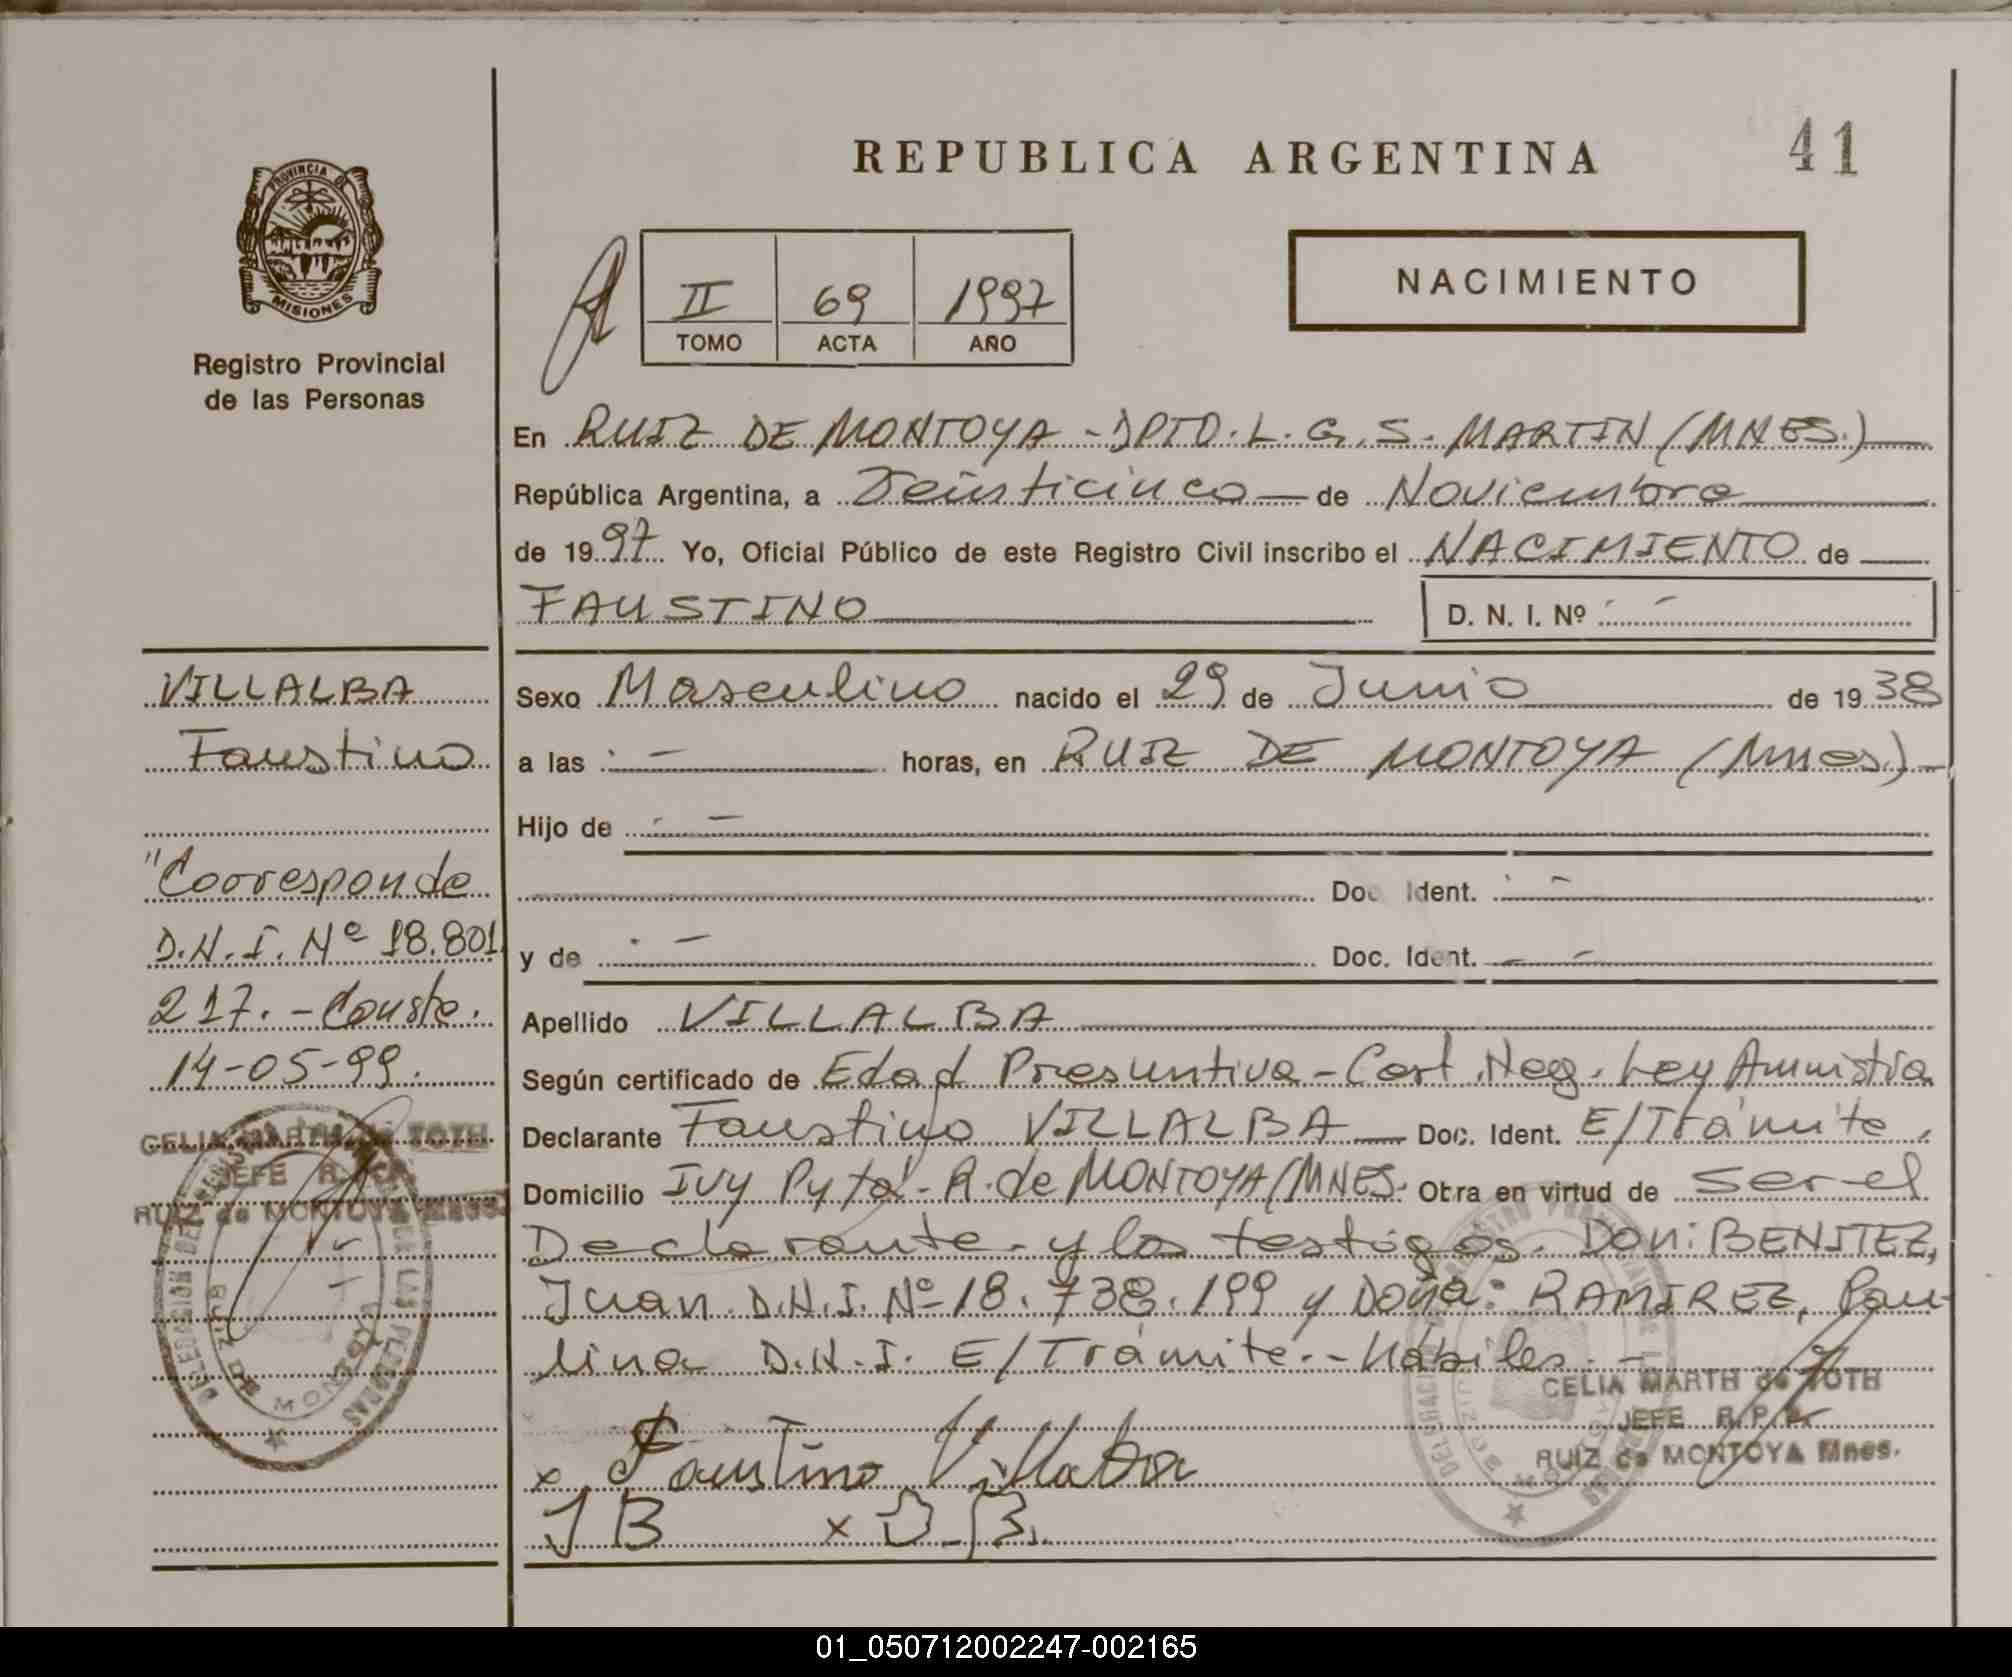 REPUBLICA ARGENTINA
41
PROVINCIA DE
MISIONES
Registro Provincial
de las Personas
II 69 1997
TOMO ACTA AÑO
NACIMIENTO
En RUIZ DE MONTOYA - DPTO. L. G. S. MARTIN (MNES.)
República Argentina, a Veinticinco de Noviembre
de 1997 Yo, Oficial Público de este Registro Civil inscribo el NACIMIENTO de
FAUSTINO D. N. I. Nº - -
VILLALBA
Faustino
"Corresponde
D.N.I. Nº 18.801.
217. - Conste.
14-05-99.
CELIA MARTH de TOTH
JEFE R. P. P.
RUIZ de MONTOYA Mnes.
DELEGACION DEL REGISTRO LAS PERSONAS
RUIZ DE MONTOYA
Sexo Masculino nacido el 29 de Junio de 1938
a las . - horas, en RUIZ DE MONTOYA (Mnes.) -
Hijo de . -
Doc. Ident. . -
y de . - Doc. Ident. - -
Apellido VILLALBA
Según certificado de Edad Presuntiva - Cert. Neg. Ley Amnistia
Declarante Faustino VILLALBA Doc. Ident. E/Trámite,
Domicilio Ivy Pytá - R. de MONTOYA (MNES. Obra en virtud de ser el
Declarante - y los testigos. Don: BENITEZ,
Juan D.N.I. Nº 18.738.199 y Doña: RAMIREZ, Pau-
lina D.N.I. E/Trámite. - Hábiles. -
CELIA MARTH de TOTH
JEFE R. P. P.
RUIZ de MONTOYA Mnes.
x Faustino Villalba
J B x
01_050712002247-002165